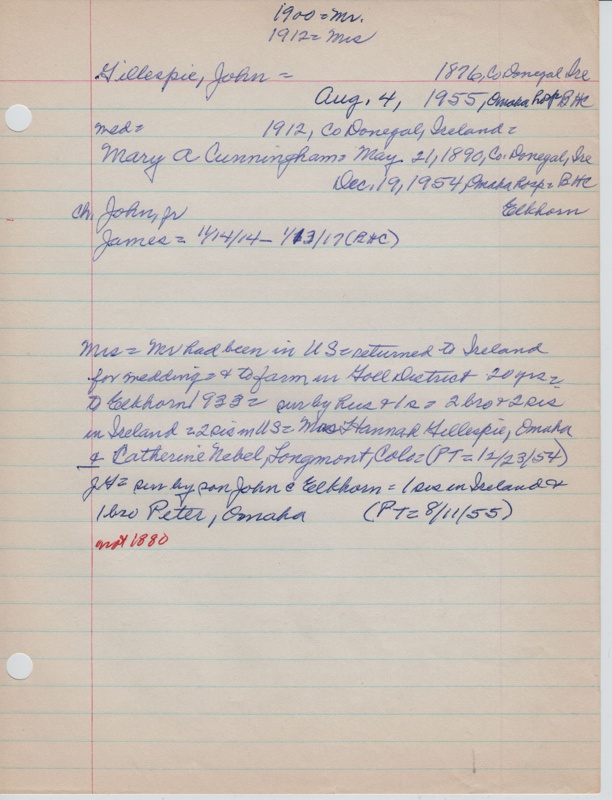 1900 = Mr.
1912 = Mrs
Gillespie, John = 1876, Co Donegal Ire
Aug. 4, 1955, Omaha hosp = BHC
med = 1912, Co Donegal, Ireland =
Mary A Cunningham = May 21, 1890, Co. Donegal, Ire
Dec. 19, 1954, Omaha hosp = BHC
Elkhorn
ch. John, jr
James = 11/14/14 - 1/13/17 (BHC)
Mrs = Mr had been in US = returned to Ireland
for wedding = & to farm in Goll District 20 yrs =
To Elkhorn 1933 = sur by hus & 1 s = 2 bro & 2 sis
in Ireland = 2 sis in US = Mrs Hannah Gillespie, Omaha
& Catherine Nebel, Longmont, Colo = (PT = 12/23/54)
JG = sur by son John C Elkhorn = 1 sis in Ireland &
1 bro Peter, Omaha (PT = 8/11/55)
not 1880